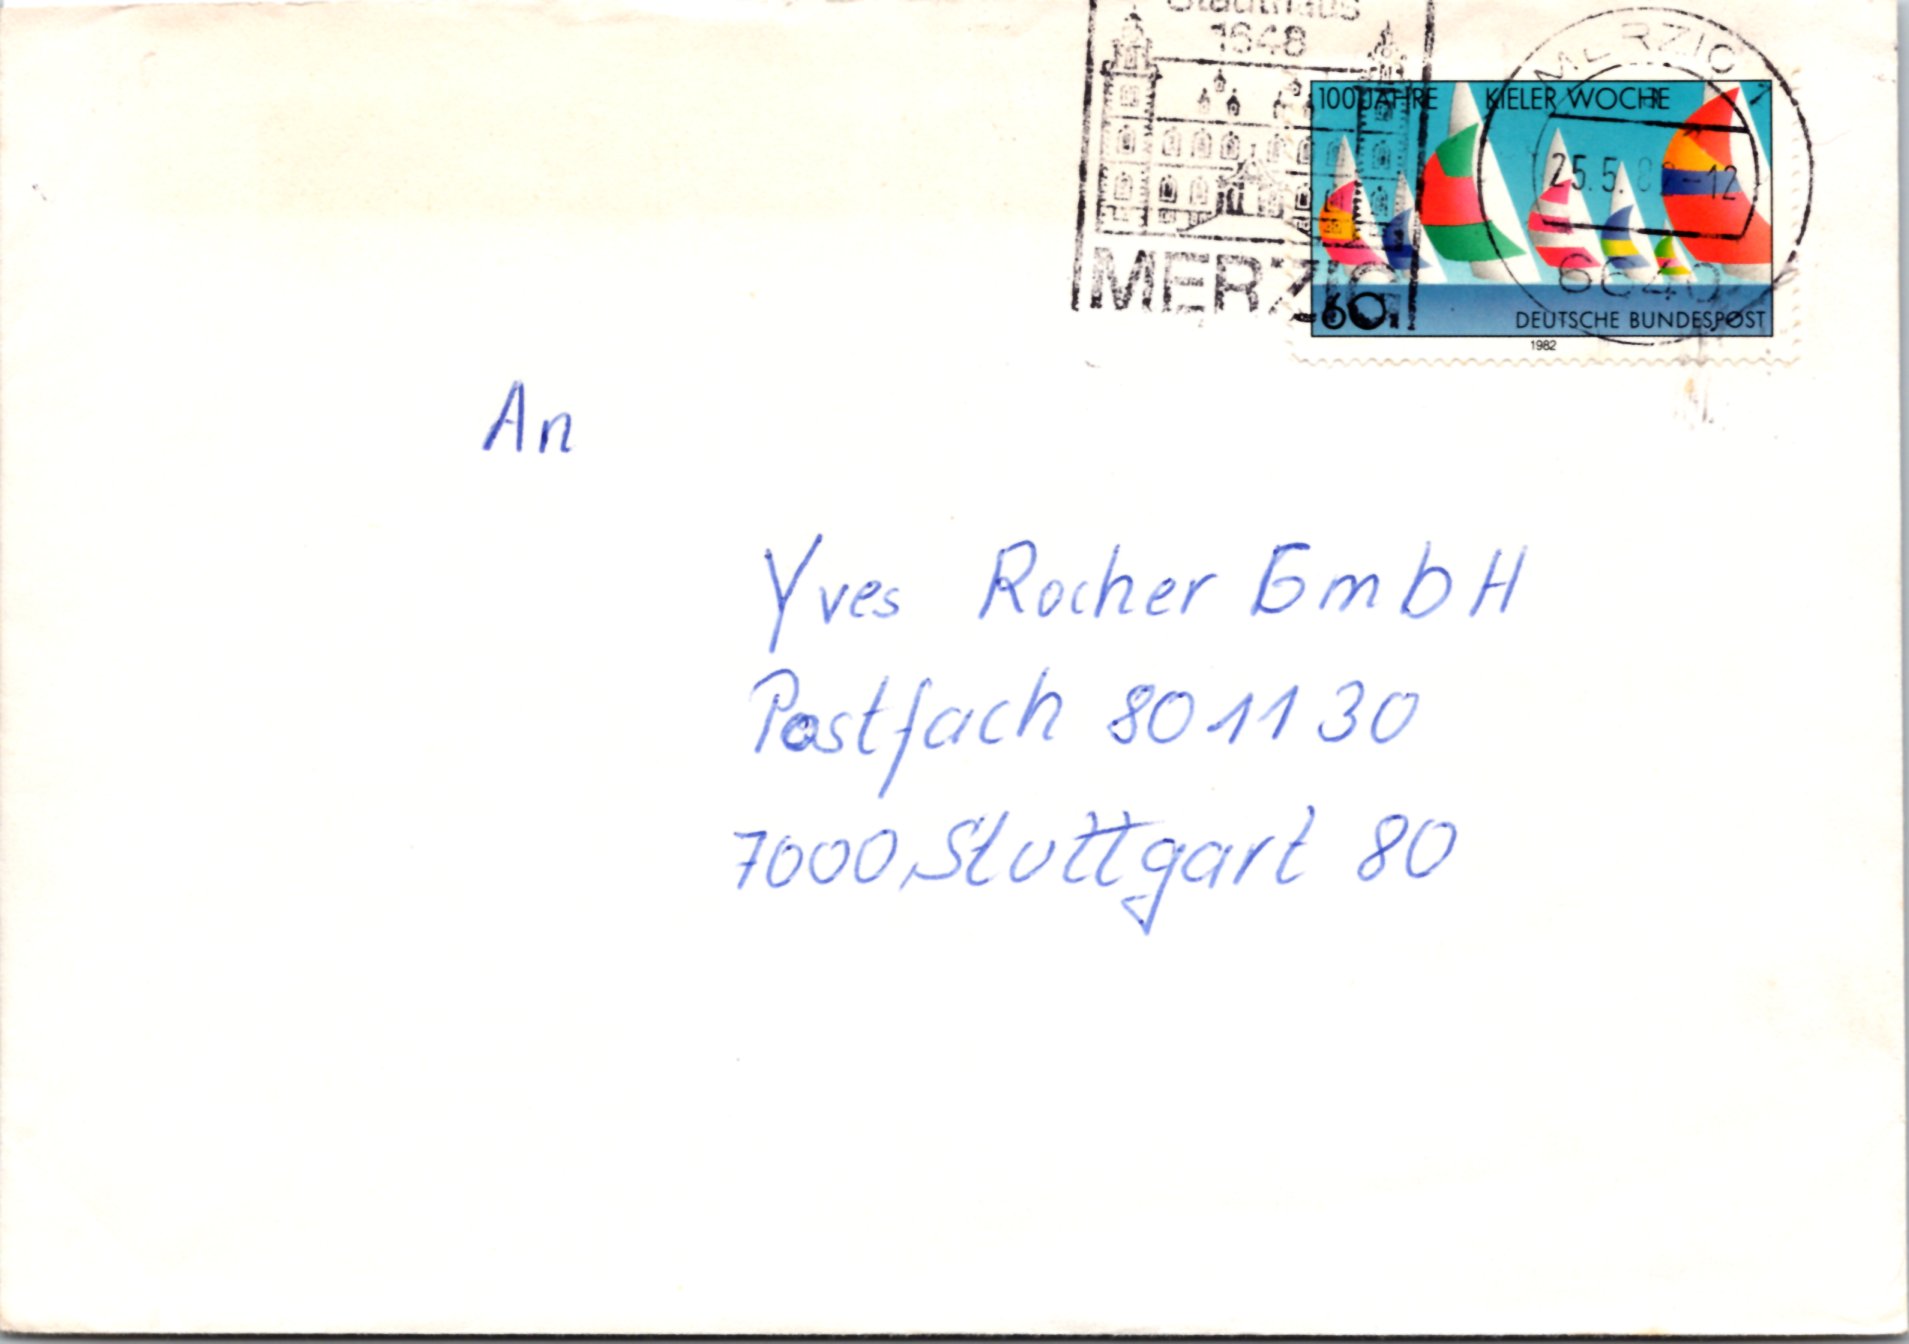 Stadthaus
1648
MERZIG
MERZIG
25.5.8 -12
6640
100 JAHRE KIELER WOCHE
60
DEUTSCHE BUNDESPOST
1982
An
Yves Rocher GmbH
Postfach 801130
7000 Stuttgart 80